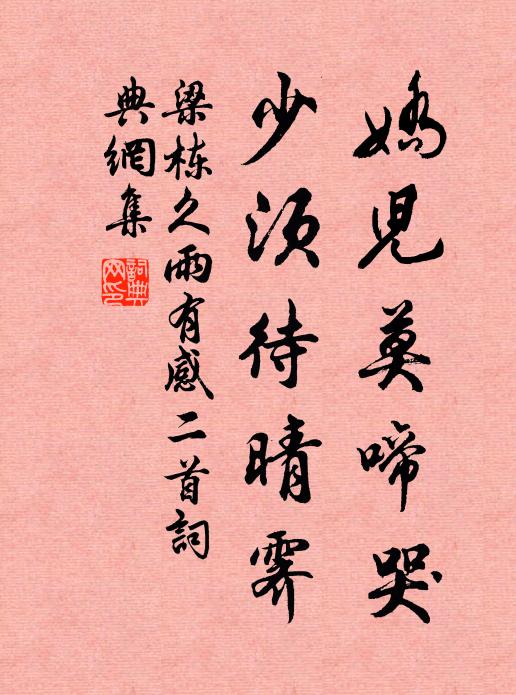 嬌児莫啼哭
少須待晴霽
梁栋久雨有感二首詞
典網集
詞典網印